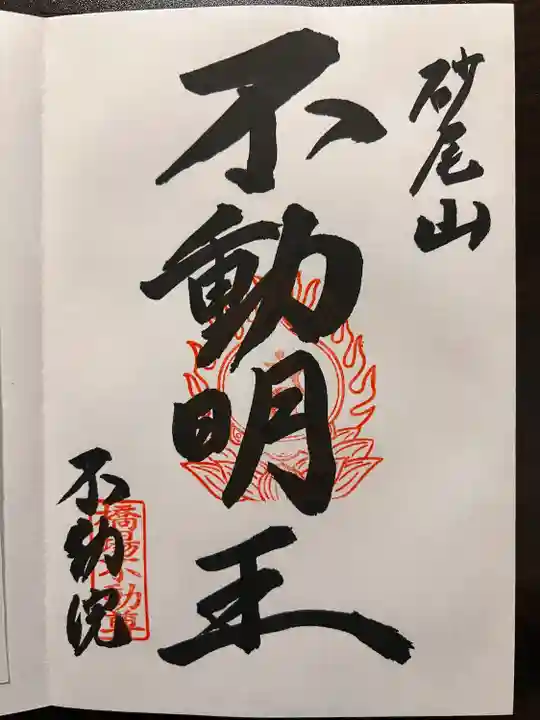 砂尾山
不動明王
不動院
橋場不動尊